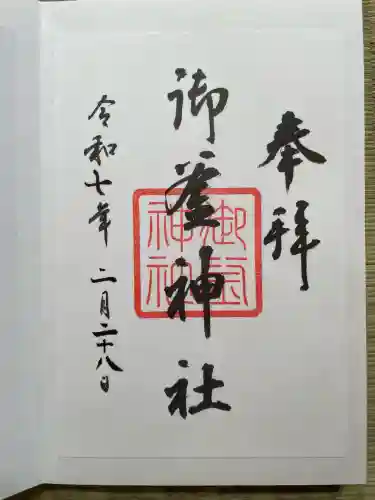 奉拝
御釜神社
御釜
神社
令和七年 二月二十八日